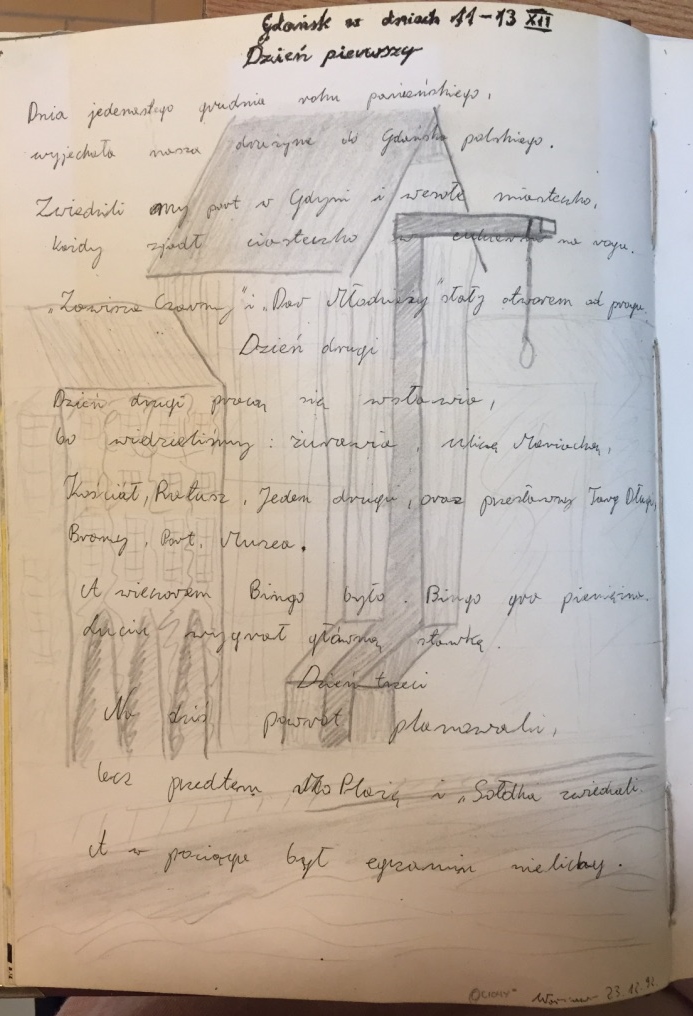 Gdańsk w dniach 11-13 XII
Dzień pierwszy
Dnia jedenastego grudnia roku pańskiego,
wyjechała nasza drużyna do Gdańska polskiego.
Zwiedzili my port w Gdyni i wesołe miasteczko,
każdy zjadł ciasteczko w cukierni na rogu.
„Zawisza Czarny" i „Dar Młodzieży" stały otworem od progu.
Dzień drugi
Dzień drugi pracą się wsławia,
bo widzieliśmy: żurawia, ulicę Mariacką,
Kościół, Ratusz, Jeden drugi, oraz przesławny Targ Długi,
Bramy, Port, Muzea.
A wieczorem Bingo było. Bingo gra pieniężna.
wygrał główną stawkę.
Dzień trzeci
Na dziś powrót planowali,
lecz przedtem Plażę i „Sołdka zwiedzali.
A w pociągu był egzamin nielichy.
23.12.92.